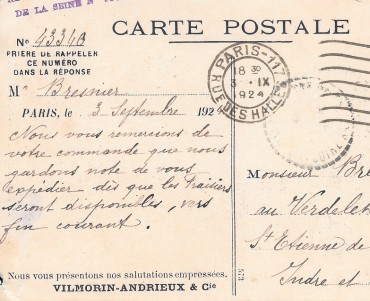 DE LA SEINE N°
CARTE POSTALE
N° 13318
PRIÈRE DE RAPPELER
CE NUMÉRO
DANS LA RÉPONSE
PARIS-117
18 30
3 - IX
1924
RUE DES HALLES
M. Bresnier
PARIS, le 3 Septembre 1924
Nous vous remercions de
votre commande que nous
gardons note de vous
expédier dès que les Fraisiers
seront disponibles, vers
fin courant.
Monsieur Bre
au Verdelet
St Etienne de
Indre et
Nous vous présentons nos salutations empressées.
VILMORIN-ANDRIEUX & Cie